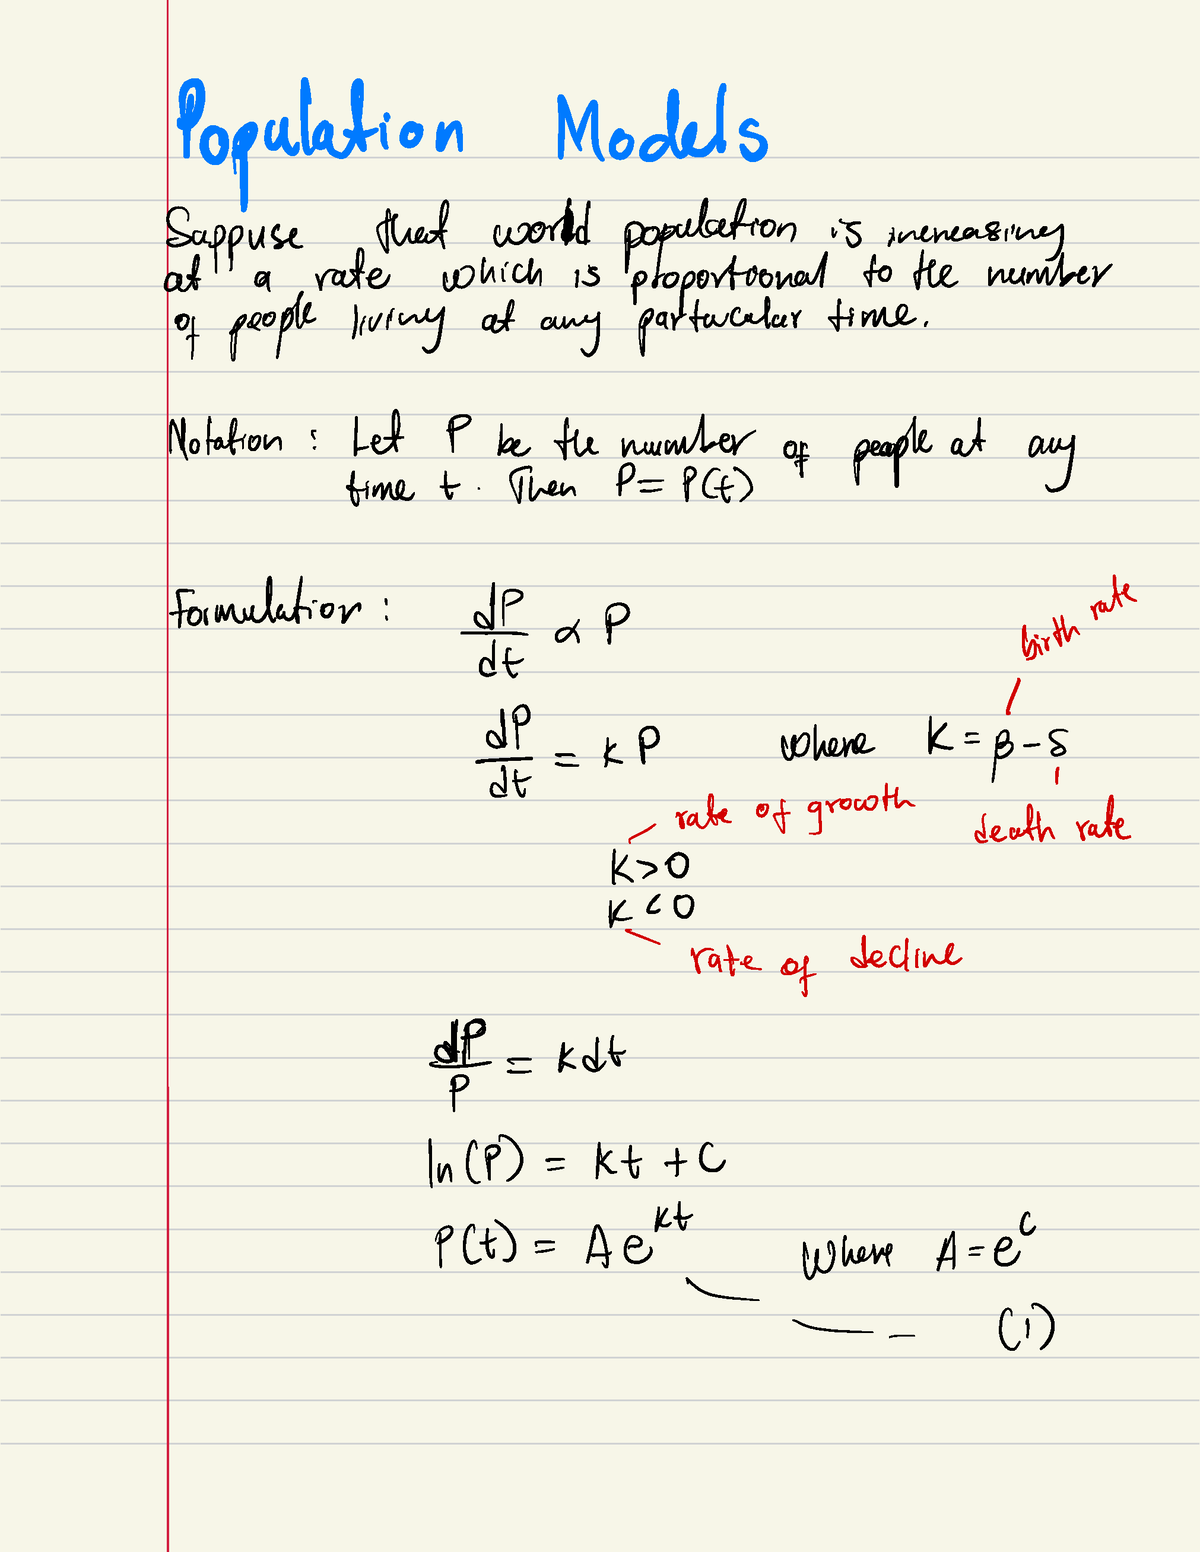 Population Models
Suppuse that world population is increasing
at a rate which is proportional to the number
of people living at any particular time.
Notation : Let P be the number of people at any
time t. Then P = P(t)
Formulation : dP/dt ∝ P
birth rate
dP/dt = k P where K = β - δ
rate of growth death rate
K > 0
K < 0
rate of decline
dP/P = k dt
ln(P) = kt + C
P(t) = A e^{kt} Where A = e^{c}
(1)